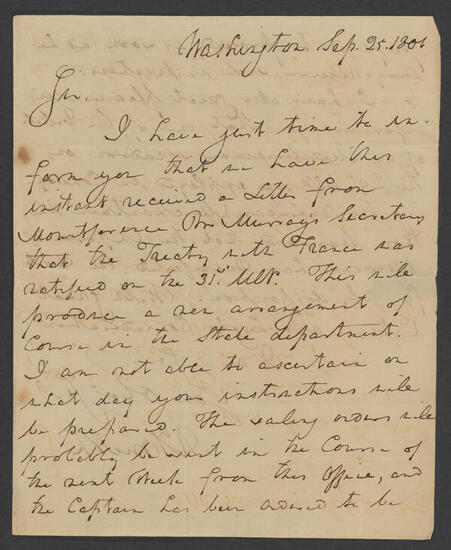 Washington Sep. 25. 1801
Sir.
I have just time to in-
form you that we have this
instant received a Letter from
Mountflorence Mr Murray's Secretary
that the Treaty with France was
ratified on the 31st Ult. This will
produce a new arrangement of
Course in the State department.
I am not able to ascertain on
what day your instructions will
be prepared. The sailing orders will
probably be sent in the Course of
the next Week from this Office, and
the Captain has been ordered to be